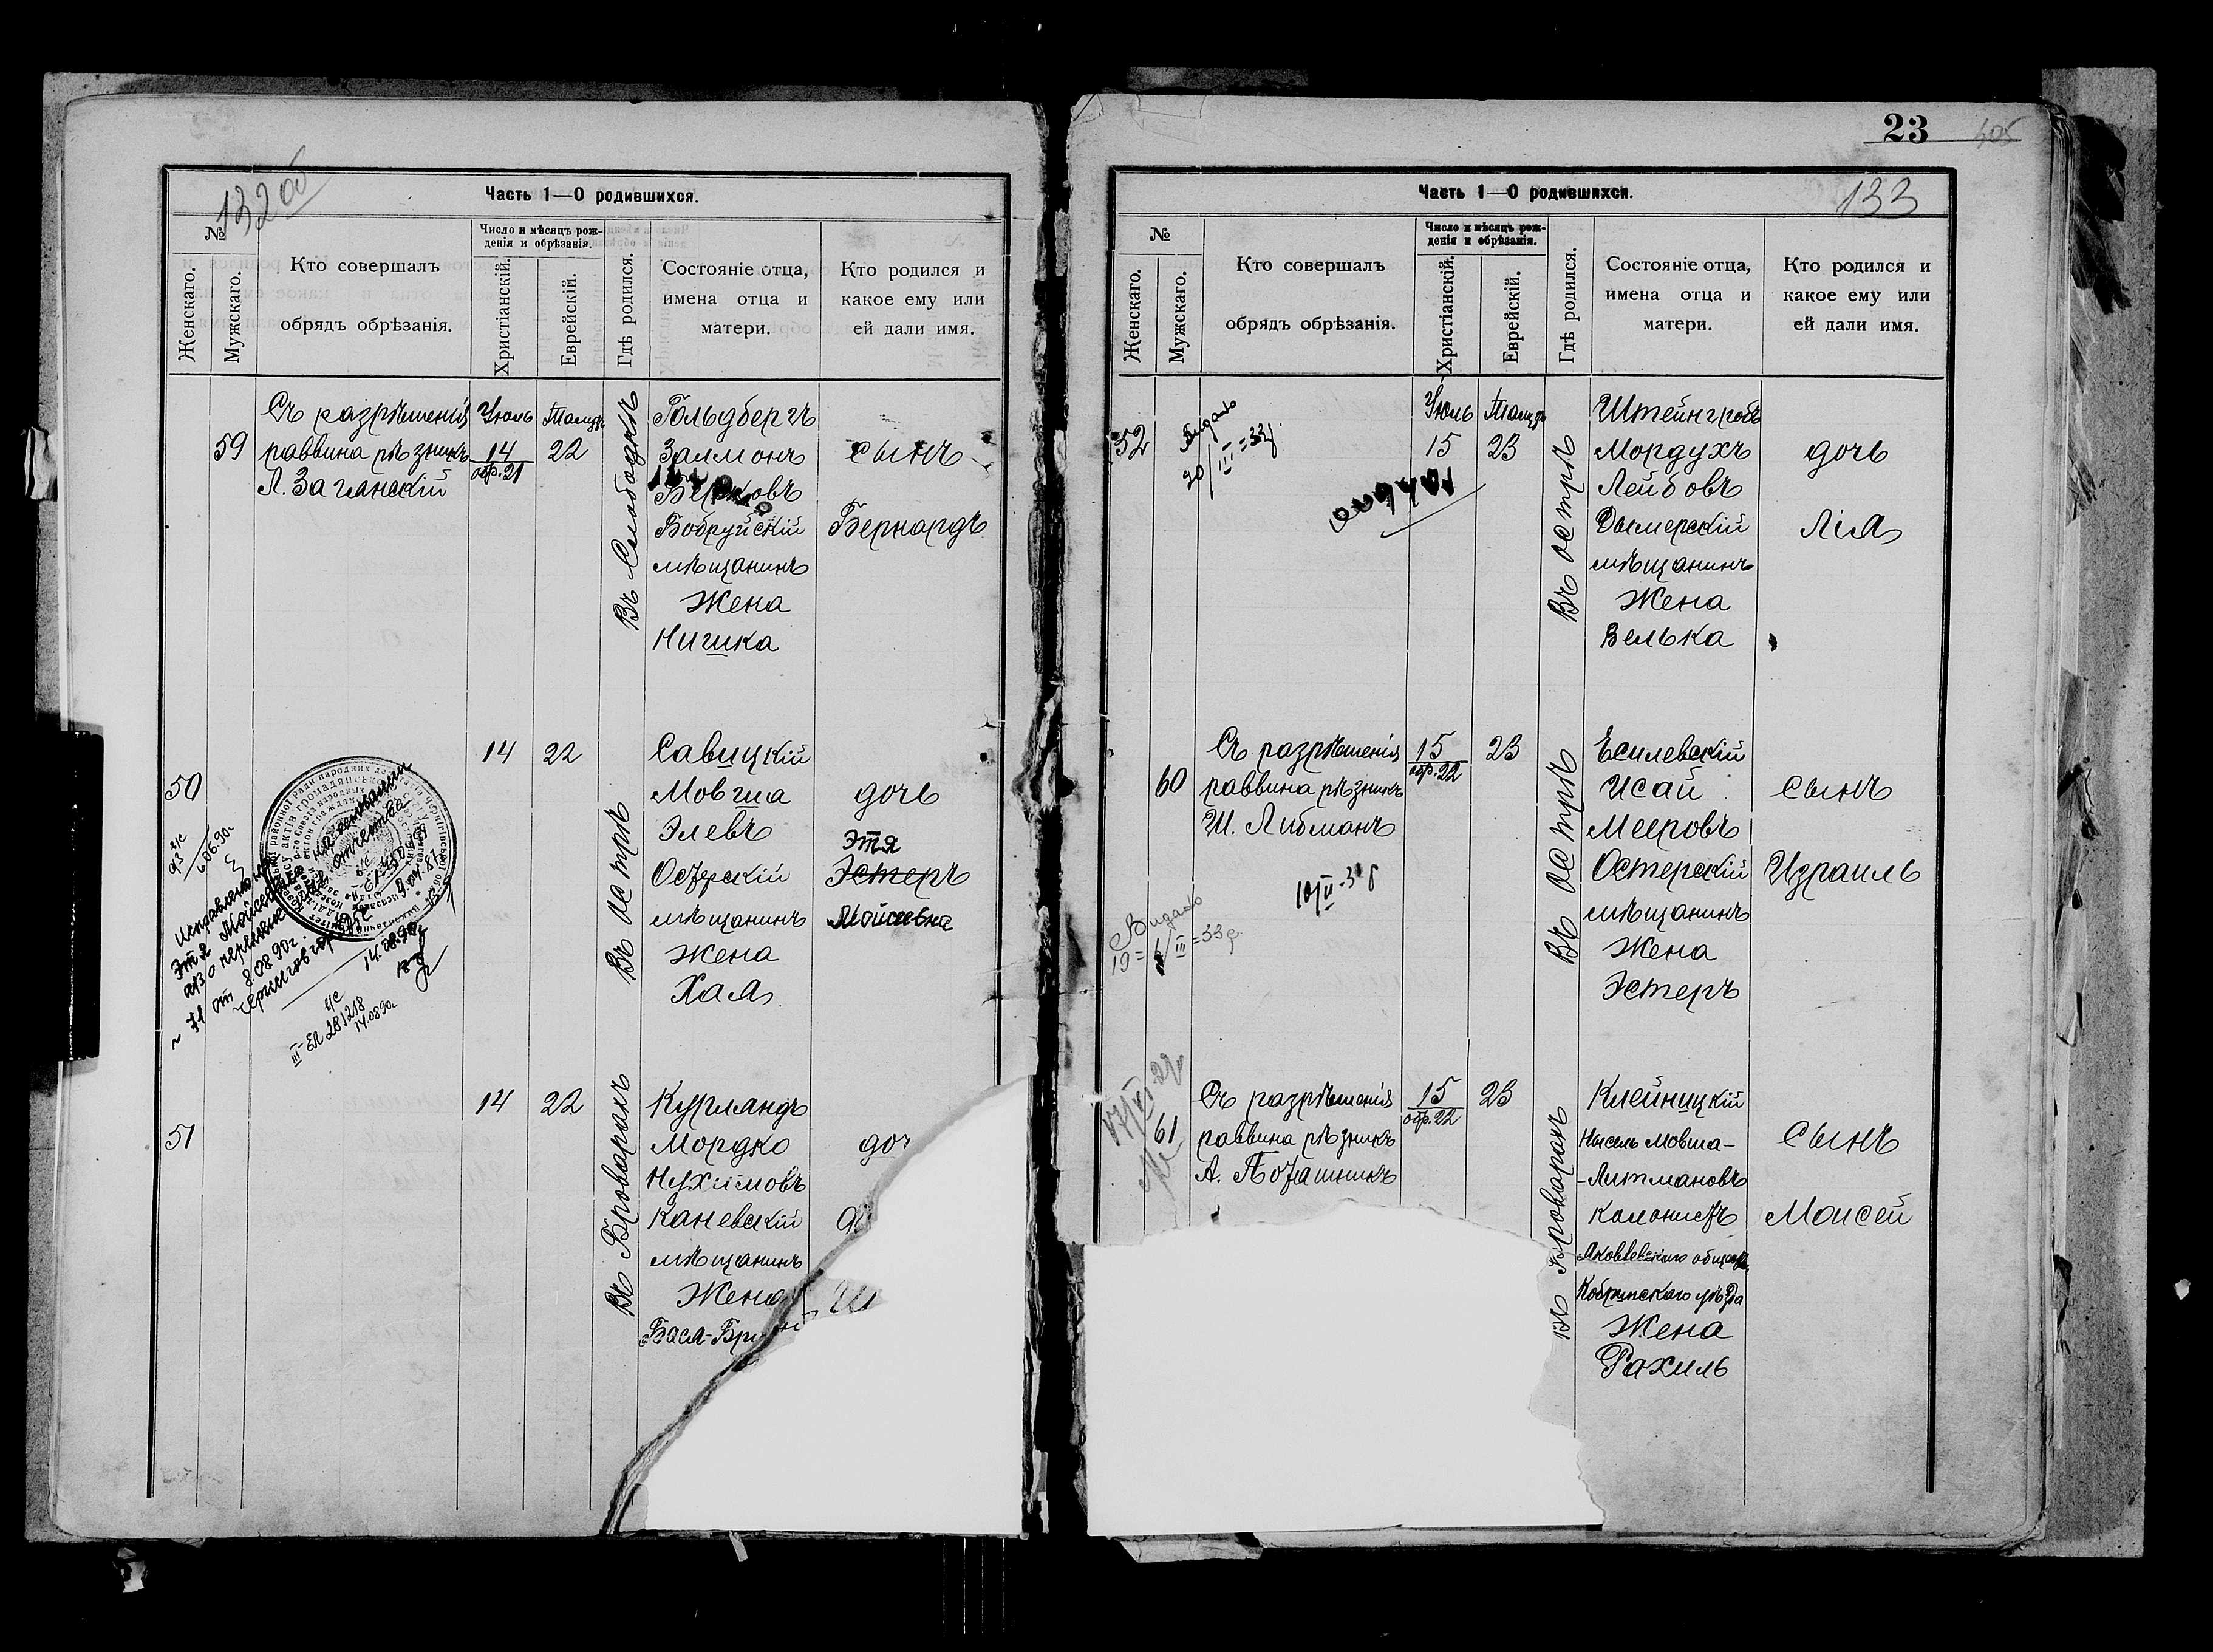 132 об
Часть 1—О родившихся.
№
Женскаго.
Мужскаго.
Кто совершалъ
обрядъ обрѣзанія.
Число и мѣсяцъ рож-
денія и обрѣзанія.
Христіанскій.
Еврейскій.
Гдѣ родился.
Состояніе отца,
имена отца и
матери.
Кто родился и
какое ему или
ей дали имя.
59
Съ разрѣшенія
раввина рѣзникъ
Л. Заганскій
Іюль
14
обр. 21
Тамуз
22
Въ Слободкѣ
Гольдбергъ
Залмонъ
Берковъ
Бобруйскій
мѣщанинъ
Жена
Нишка
сынъ
Бернардъ
50
14
22
Въ Острѣ
Савицкій
Мовша
Элевъ
Остерскій
мѣщанинъ
Жена
Хая
дочь
Этя
Эстеръ
Мойсеевна
4/с
6.06.90г.
Исправлено имя
Этя Мойсеевна
на основании
от 8.08.90г.
14.08.90г
III-ЕЛ 281218
14.08.90г
51
14
22
Въ Броварахъ
Курландъ
Мордко
Нухимовъ
Каневскій
мѣщанинъ
Жена
Бася-
доч
23
133
Часть 1—О родившихся.
№
Женскаго.
Мужскаго.
Кто совершалъ
обрядъ обрѣзанія.
Число и мѣсяцъ рож-
денія и обрѣзанія.
Христіанскій.
Еврейскій.
Гдѣ родился.
Состояніе отца,
имена отца и
матери.
Кто родился и
какое ему или
ей дали имя.
52
Видано
20/III=33р.
Іюль
15
Тамуз
23
Въ Острѣ
Штейнгробъ
Мордухъ
Лейбовъ
Дымерскій
мѣщанинъ
Жена
Велька
дочь
Лія
60
Съ разрѣшенія
раввина рѣзникъ
Ш. Либманъ
15
обр. 22
23
Въ Острѣ
Есилевскій
Исай
Мееровъ
Остерскій
мѣщанинъ
Жена
Эстеръ
сынъ
Израиль
Видано
61
Съ разрѣшенія
раввина рѣзникъ
А. Поташникъ
15
обр. 22
23
Въ Броварахъ
Клейницкій
Нысель Мовша-
-Литмановъ
Колонистъ
Яковлевскаго общества
Кобринскаго уѣзда
Жена
Рахиль
сынъ
Моисей